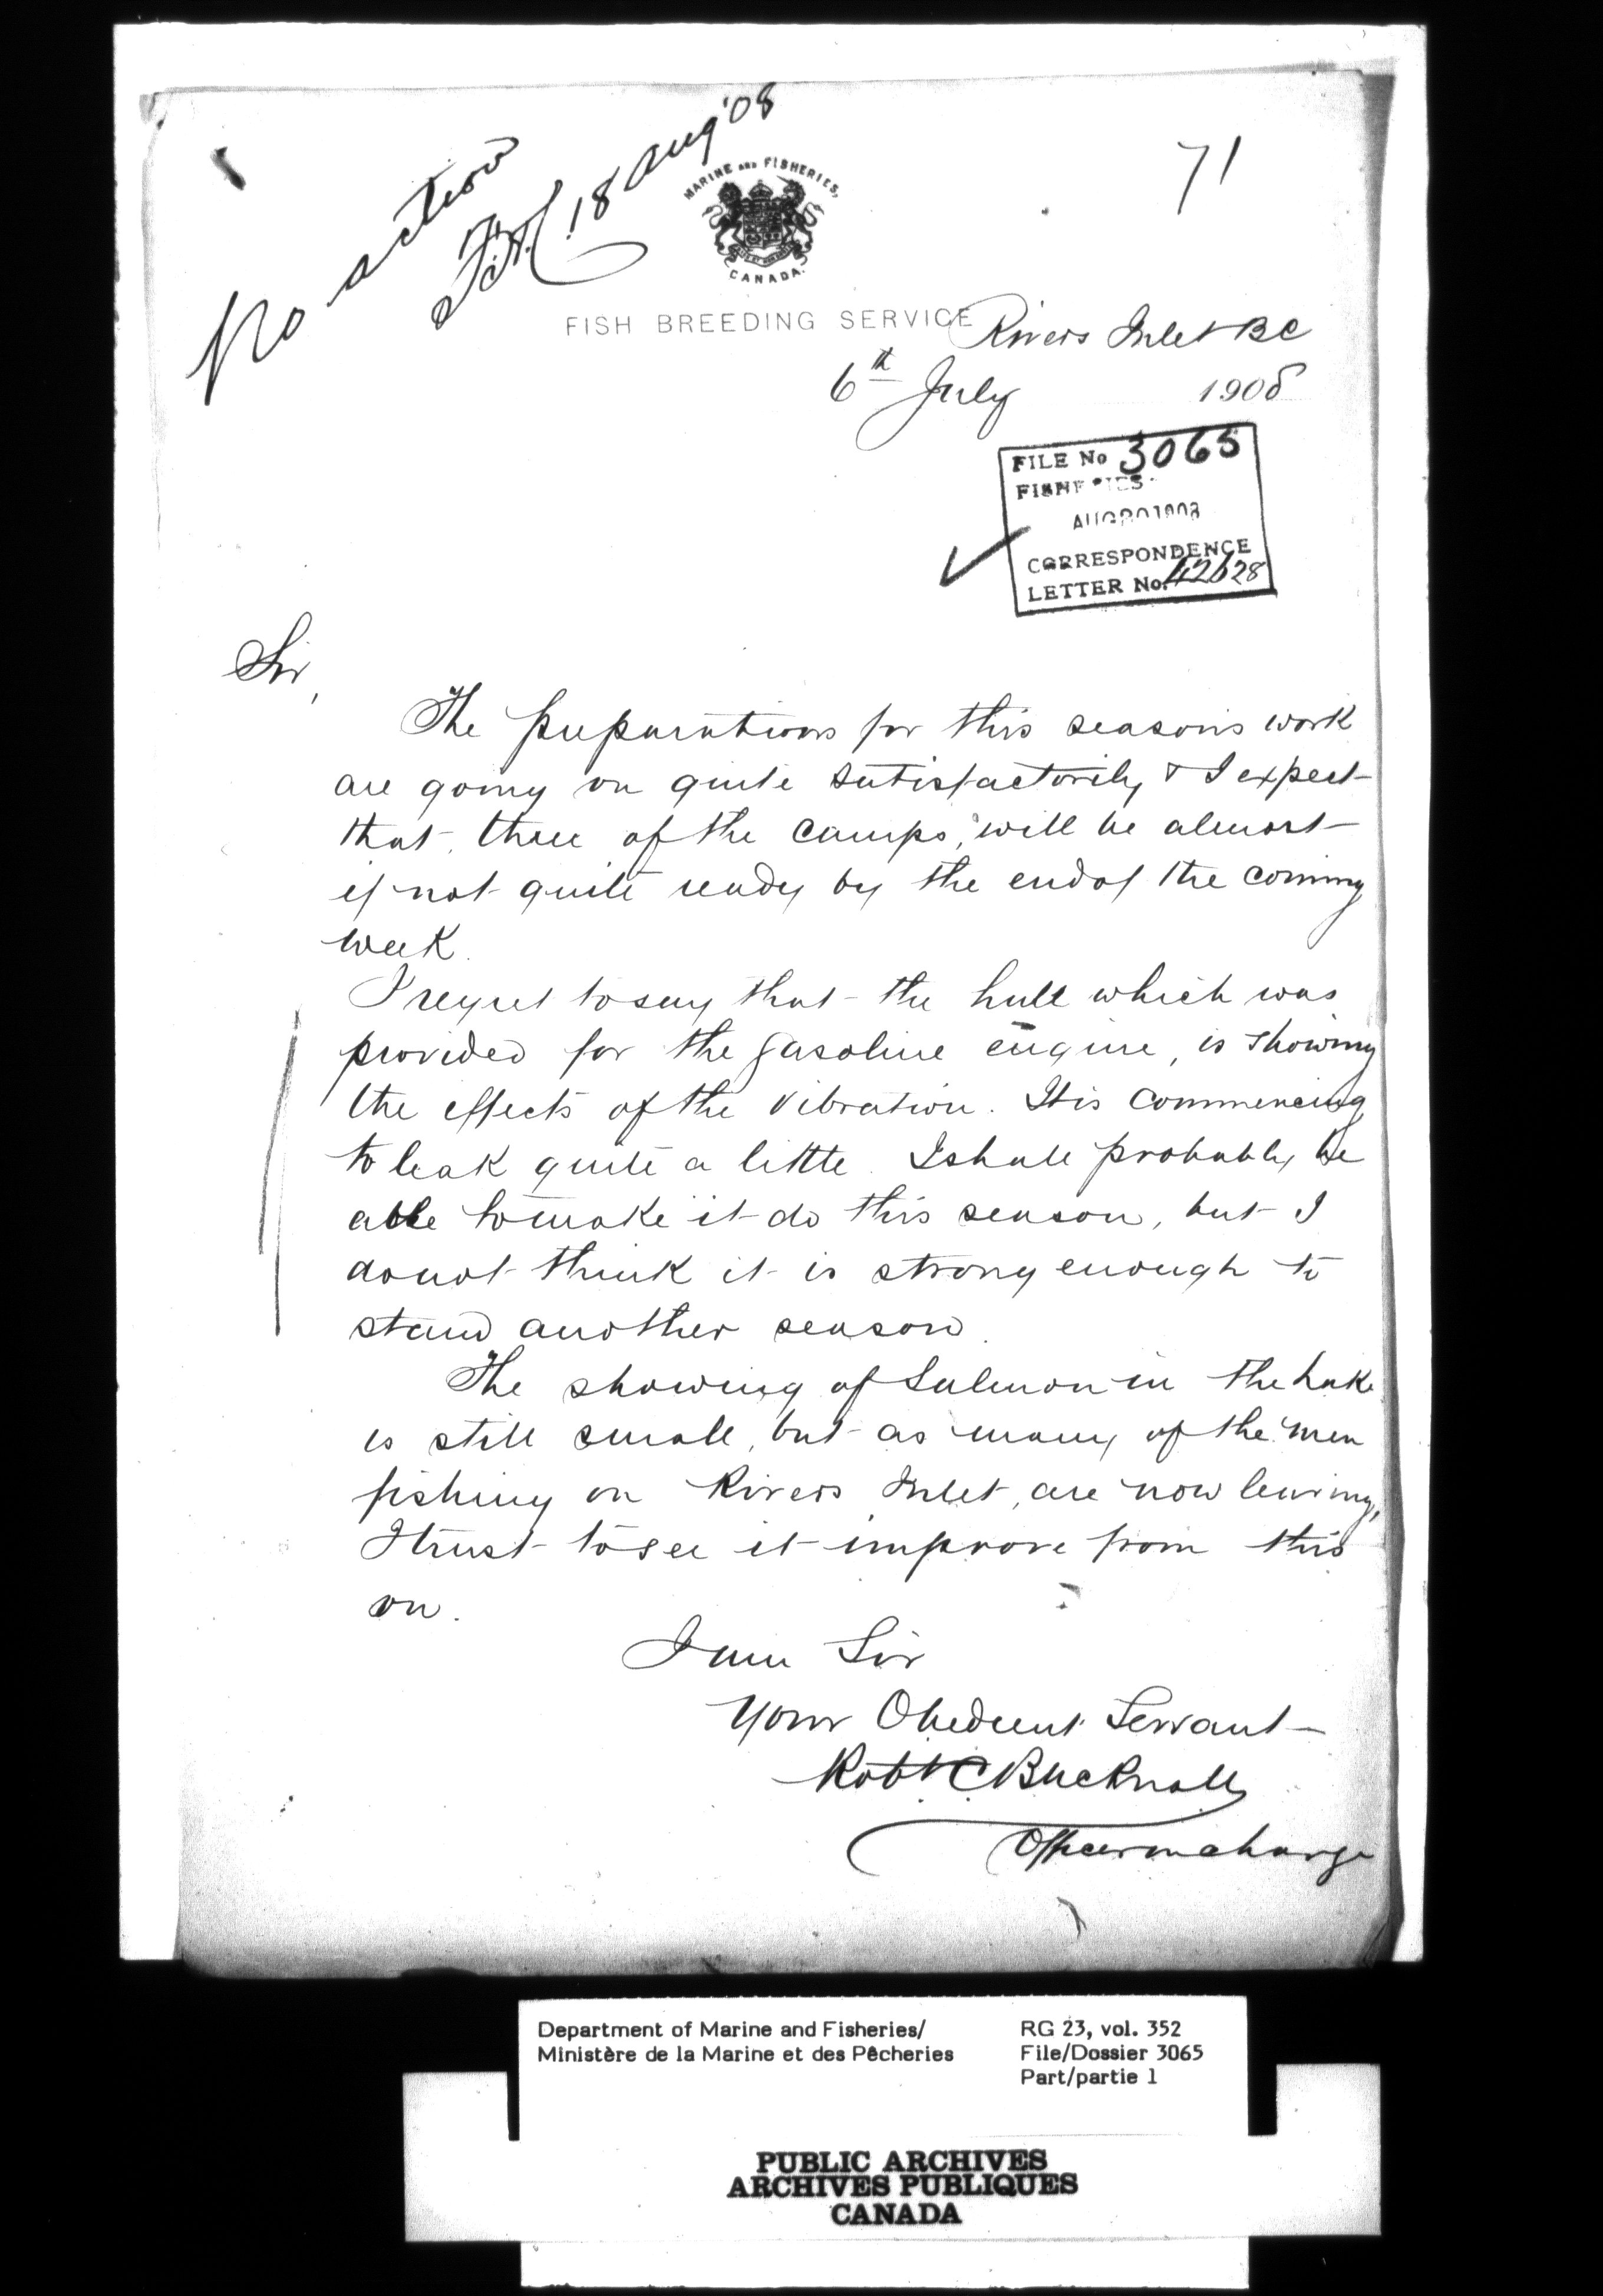 No action
18 Aug '08
71
MARINE AND FISHERIES,
CANADA.
FISH BREEDING SERVICE
Rivers Inlet BC
6th July 1908
FILE No 3065
FISHERIES
AUG 20 1908
CORRESPONDENCE
LETTER No. 42628
Sir,
The preparations for this season's work
are going on quite satisfactorily & I expect
that three of the camps, will be almost
if not quite ready by the end of the coming
week.
I regret to say that the hull which was
provided for the gasoline engine, is showing
the effects of the vibration. It is commencing
to leak quite a little. I shall probably be
able to make it do this season, but I
do not think it is strong enough to
stand another season.
The showing of Salmon in the Lake
is still small, but as many of the men
fishing on Rivers Inlet, are now leaving,
I trust to see it improve from this
on.
I am Sir
Your Obedient Servant
Robt C Bucknall
Officer in charge
Department of Marine and Fisheries/
Ministère de la Marine et des Pêcheries
RG 23, vol. 352
File/Dossier 3065
Part/partie 1
PUBLIC ARCHIVES
ARCHIVES PUBLIQUES
CANADA